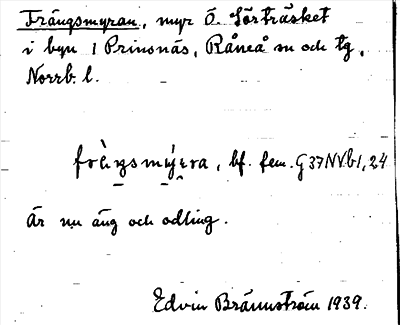 Trångsmyran, myr Ö. Sörträsket
i byn 1 Prinsnäs, Råneå sn och tg,
Norrb. l.
bf. fem. G37NV.b1, 24
Är nu äng och odling.
Edvin Brännström 1939.